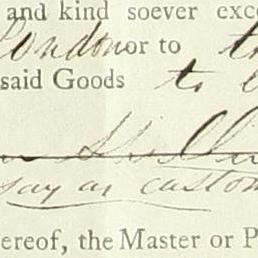 and kind soever exc
London or to th
said Goods to
say as custom
ereof, the Master or P